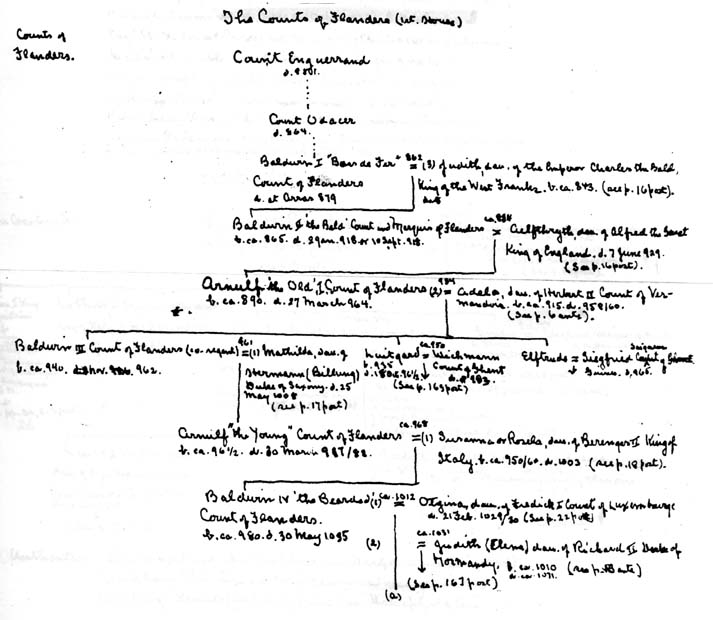 The Counts of Flanders (1st. House)
Counts of
Flanders.
Count Enguerrand
Count Odacer
d. 864.
Baldwin I "Bras de Fer" 862 = (3) Judith, dau. of the Emperor Charles the Bald,
Count of Flanders King of the West Franks. b. ca. 843. (see p. 16 post).
d. at Arras 879
Baldwin II "the Bald" Count and Marquis of Flanders ca. 884 = Aelfthryth, dau. of Alfred the Great
b. ca. 865. d. 2 Jan. 918 or 10 Sept. 918. King of England. d. 7 June 929.
(See p. 16 post).
Arnulf "the Old" I Count of Flanders (2) 934 = Adela, dau. of Herbert II Count of Ver-
b. ca. 890. d. 27 March 964. mandois. b. ca. 915. d. 958/60.
(See p. 6 ante).
Baldwin III Count of Flanders (co. regent) 961 = (1) Mathilda, dau. of Luitgard ca. 950 = Wichmann Elftrude = Siegfried Count of
b. ca. 940. 962. Hermann (Billung) b. 935 Count of Ghent Guines. d. 965.
Duke of Saxony. d. 25 d. 961/2 d. 983.
May 1008 (See p. 163 post)
(see p. 17 post)
Arnulf "the Young" Count of Flanders ca. 968 = (1) Susanna or Rosela, dau. of Berenger II King of
b. ca. 961/2. d. 30 March 987/88. Italy. b. ca. 950/60. d. 1003 (see p. 18 post).
Baldwin IV "the Bearded" (1) ca. 1012 = Ogina, dau. of Fredick I Count of Luxembourg
Count of Flanders. d. 21 Feb. 1029/30 (See p. 22 post)
b. ca. 980. d. 30 May 1035 ca. 1031
(2) = Judith (Elena) dau. of Richard II Duke of
Normandy. b. ca. 1010 (see p. ante)
d. ca. 1071.
(See p. 167 post)
(a)